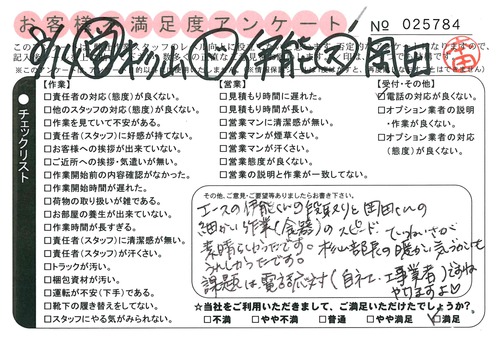 お客様満足度アンケート
No 025784
チェックリスト
【作業】
□責任者の対応(態度)が良くない。
□他のスタッフの対応(態度)が良くない。
□作業を見ていて不安がある。
□責任者(スタッフ)に好感が持てない。
□お客様への挨拶が出来ていない。
□ご近所への挨拶・気遣いが無い。
□作業開始前の内容確認がなかった。
□作業開始時間が遅れた。
□荷物の取り扱いが雑である。
□お部屋の養生が出来ていない。
□作業時間が長すぎる。
□責任者(スタッフ)に清潔感が無い。
□責任者(スタッフ)が汗くさい。
□トラックが汚い。
□梱包資材が汚い。
□運転が不安(下手)である。
□靴下の履き替えをしてない。
□スタッフにやる気がみられない。
【営業】
□見積もり時間に遅れた。
□見積もり時間が長い。
□営業マンに清潔感が無い。
□営業マンが煙草くさい。
□営業マンが汗くさい。
□営業態度が良くない。
□営業の説明と作業が一致してない。
【受付・その他】
□電話の対応が良くない。
□オプション業者の説明
・作業が良くない。
□オプション業者の対応
(態度)が良くない。
その他、ご意見・ご要望等ありましたらお書き下さい。
エースの伊能くんの段取りと岡田くんの
細かい作業(食器)のスピード ていねいさが
素晴らしかったです。杉山部長の暖かい気づかいも
うれしかったです。
課題は電話応対(自社・工事業者)ですね
やりますよ♡
☆当社をご利用いただきまして、ご満足いただけたでしょうか?
□不満 □やや不満 □普通 □やや満足 □満足